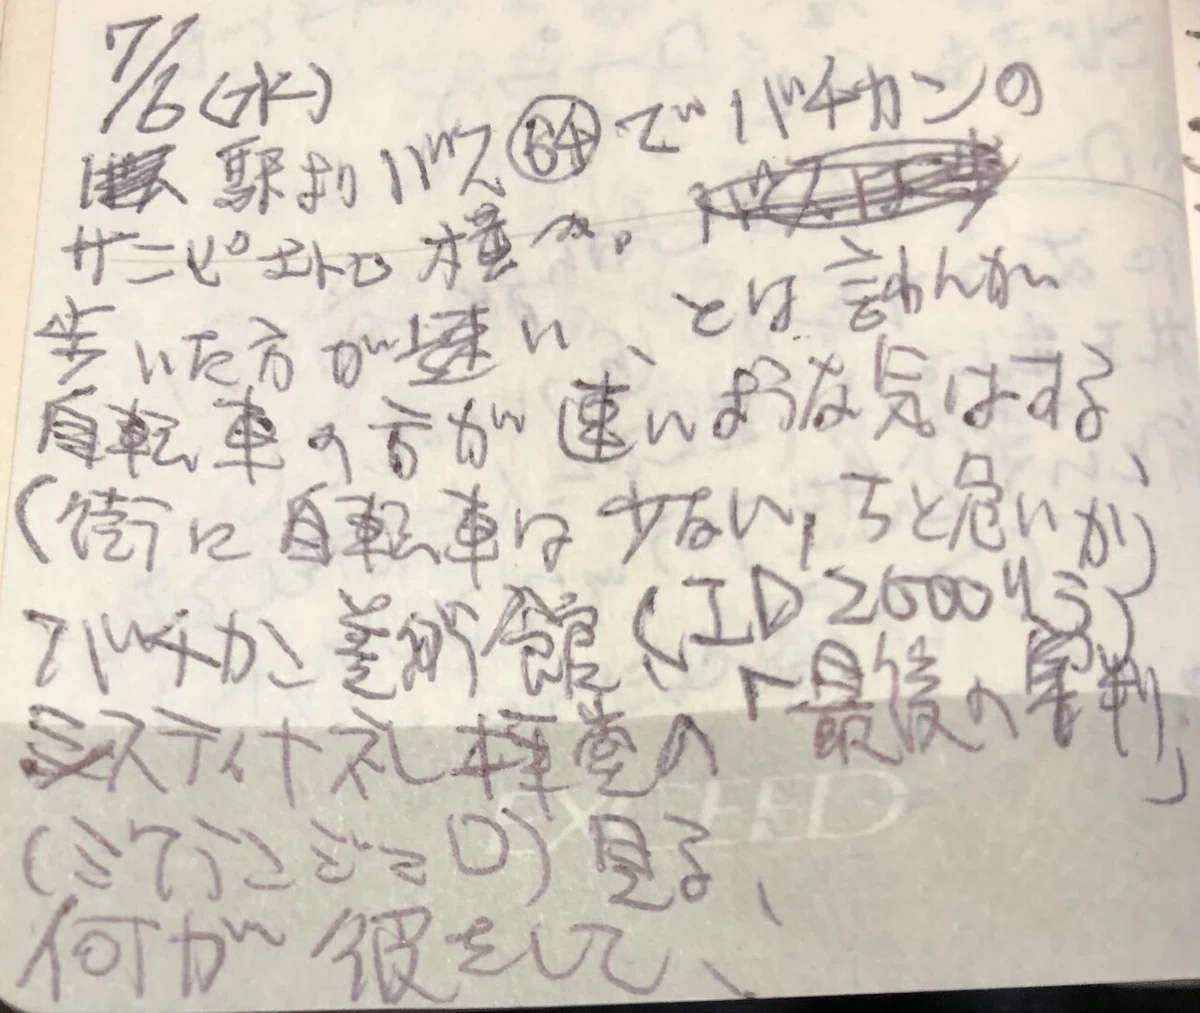 7/6(水)
駅よりバス64でバチカンの
サンピエトロ横へ。
歩いた方が速い、とは言わんが
自転車の方が速いような気はする
(街に自転車は少ない,ちと危いが)、
でバチカン美術館(ID 2600リラ)
システィナ礼拝堂の「最後の審判」
(ミケランジェロ)見る、
何が彼をして、
EXCEED